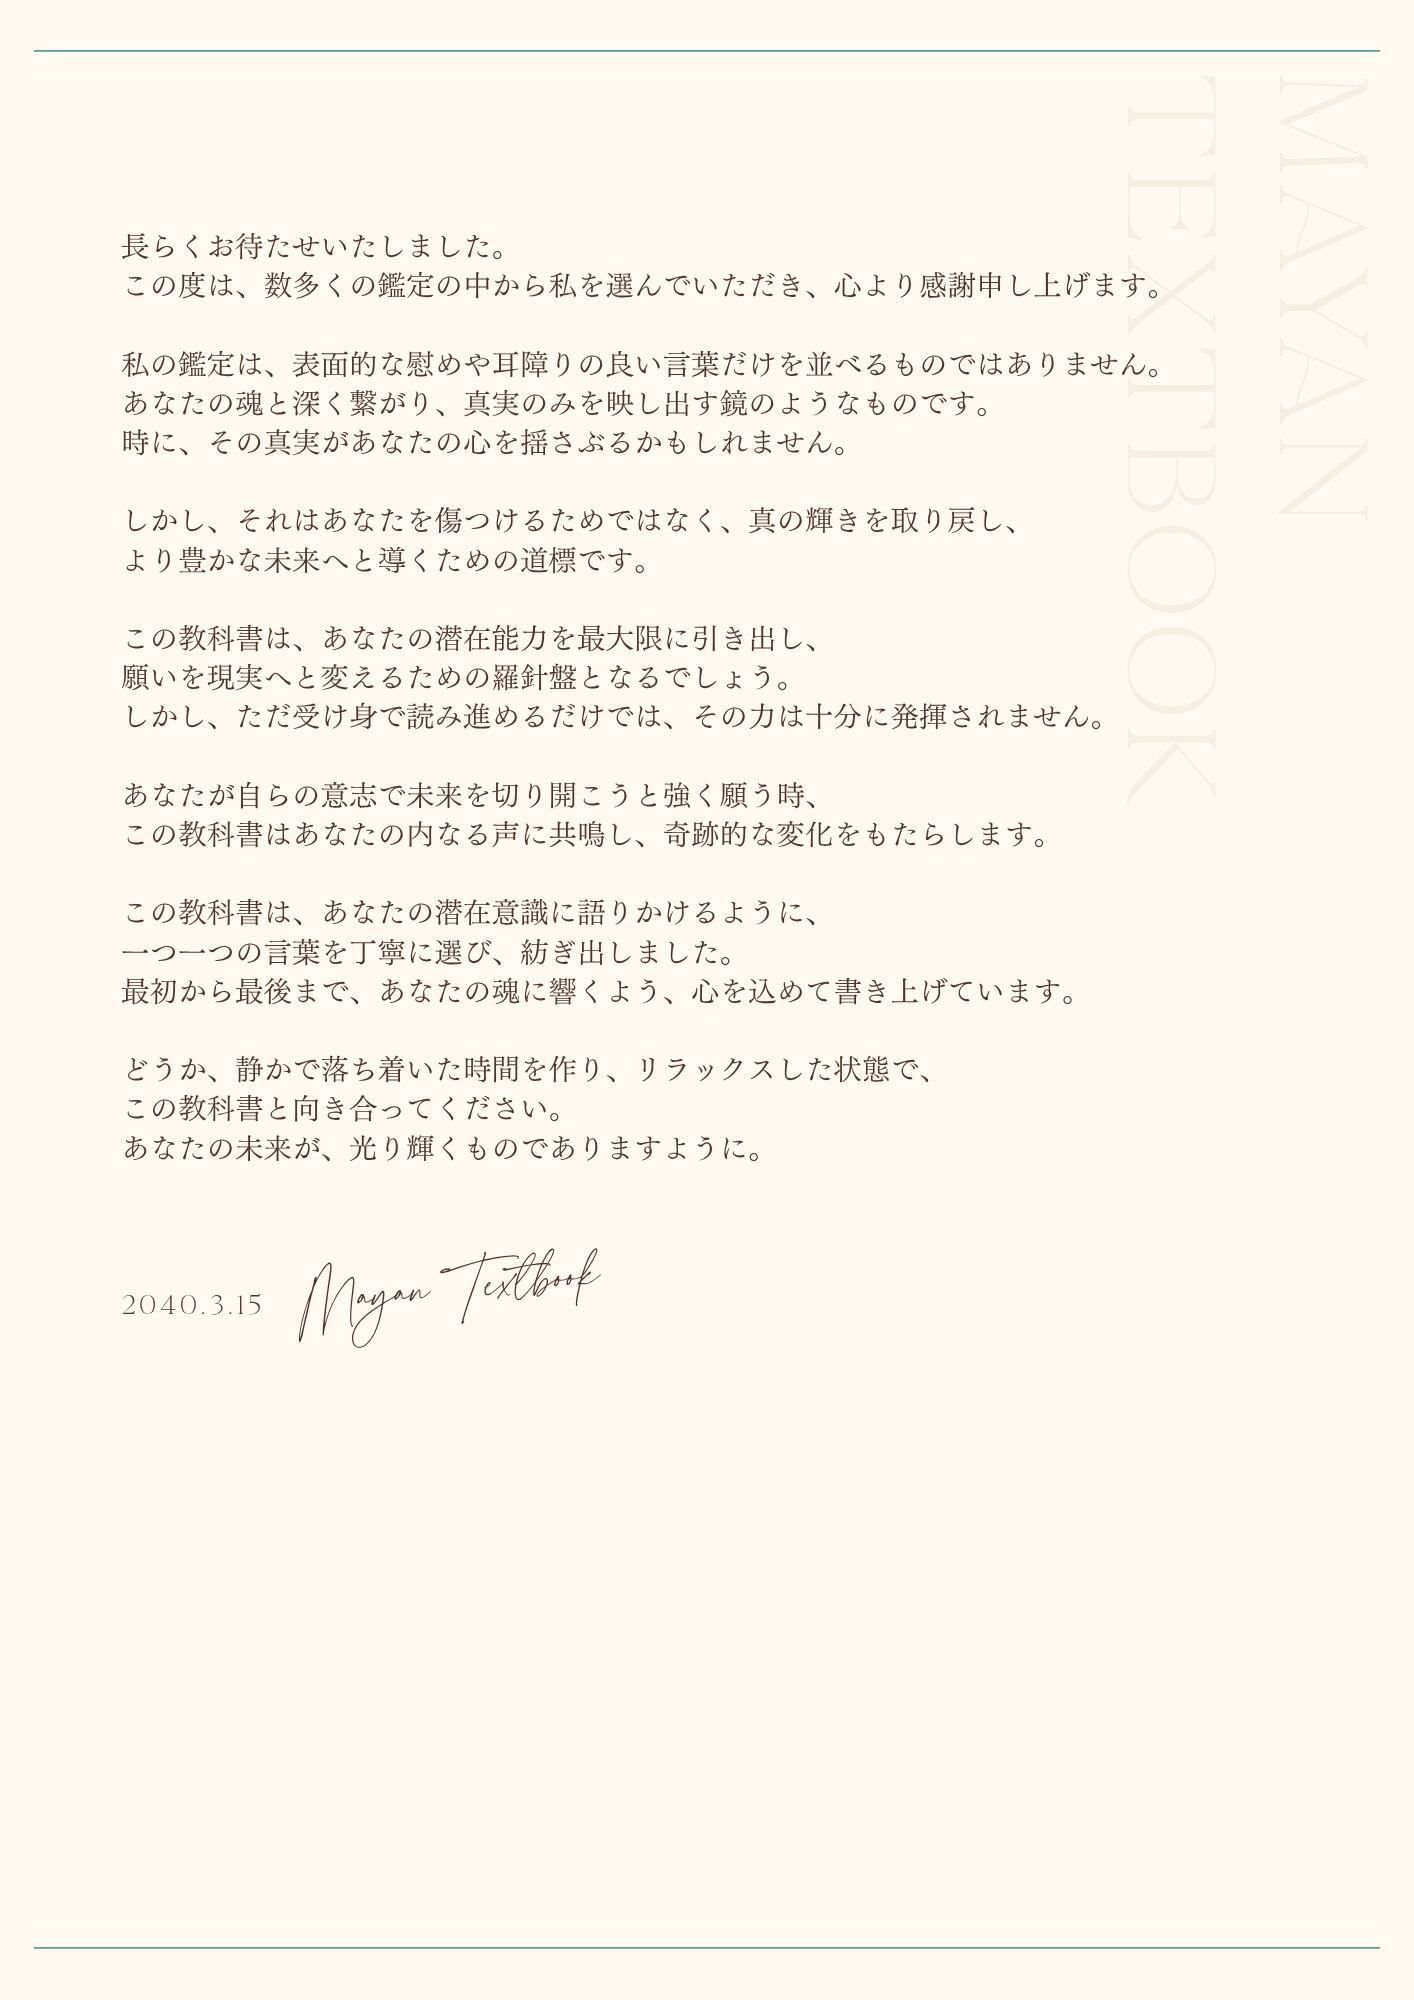 MAYAN
TEXTBOOK
長らくお待たせいたしました。
この度は、数多くの鑑定の中から私を選んでいただき、心より感謝申し上げます。
私の鑑定は、表面的な慰めや耳障りの良い言葉だけを並べるものではありません。
あなたの魂と深く繋がり、真実のみを映し出す鏡のようなものです。
時に、その真実があなたの心を揺さぶるかもしれません。
しかし、それはあなたを傷つけるためではなく、真の輝きを取り戻し、
より豊かな未来へと導くための道標です。
この教科書は、あなたの潜在能力を最大限に引き出し、
願いを現実へと変えるための羅針盤となるでしょう。
しかし、ただ受け身で読み進めるだけでは、その力は十分に発揮されません。
あなたが自らの意志で未来を切り開こうと強く願う時、
この教科書はあなたの内なる声に共鳴し、奇跡的な変化をもたらします。
この教科書は、あなたの潜在意識に語りかけるように、
一つ一つの言葉を丁寧に選び、紡ぎ出しました。
最初から最後まで、あなたの魂に響くよう、心を込めて書き上げています。
どうか、静かで落ち着いた時間を作り、リラックスした状態で、
この教科書と向き合ってください。
あなたの未来が、光り輝くものでありますように。
2040.3.15 Mayan Textbook